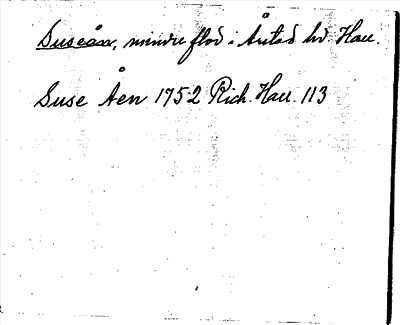 Suseån, mindre flod i Årstad hd Hall.
Suse Åen 1752 Rich. Hall. 113